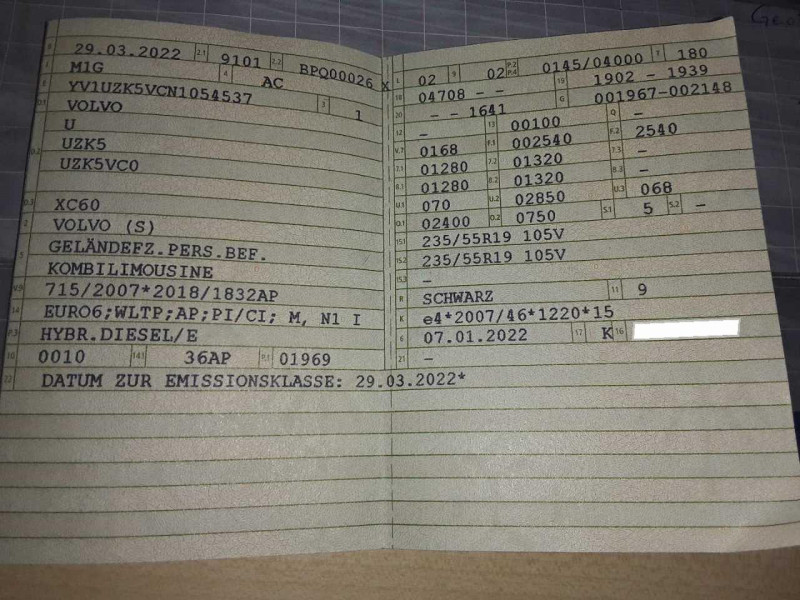 B 29.03.2022 2.1 9101 2.2 BPQ00026 X
J M1G 4 AC
E YV1UZK5VCN1054537 3 1
D.1 VOLVO
U
D.2 UZK5
UZK5VC0
D.3 XC60
2 VOLVO (S)
5 GELÄNDEFZ.PERS.BEF.
KOMBILIMOUSINE
V.9 715/2007*2018/1832AP
14 EURO6;WLTP;AP;PI/CI; M, N1 I
P.3 HYBR.DIESEL/E
10 0010 14.1 36AP P.1 01969
22 DATUM ZUR EMISSIONSKLASSE: 29.03.2022*
L 02 9 02 P.2 P.4 0145/04000 T 180
18 04708 - - 19 1902 - 1939
20 - - 1641 G 001967-002148
12 - 13 00100 Q -
V.7 0168 F.1 002540 F.2 2540
7.1 01280 7.2 01320 7.3 -
8.1 01280 8.2 01320 8.3 -
U.1 070 U.2 02850 U.3 068
O.1 02400 O.2 0750 S.1 5 S.2 -
15.1 235/55R19 105V
15.2 235/55R19 105V
15.3 -
R SCHWARZ 11 9
K e4*2007/46*1220*15
6 07.01.2022 17 K 16
21 -